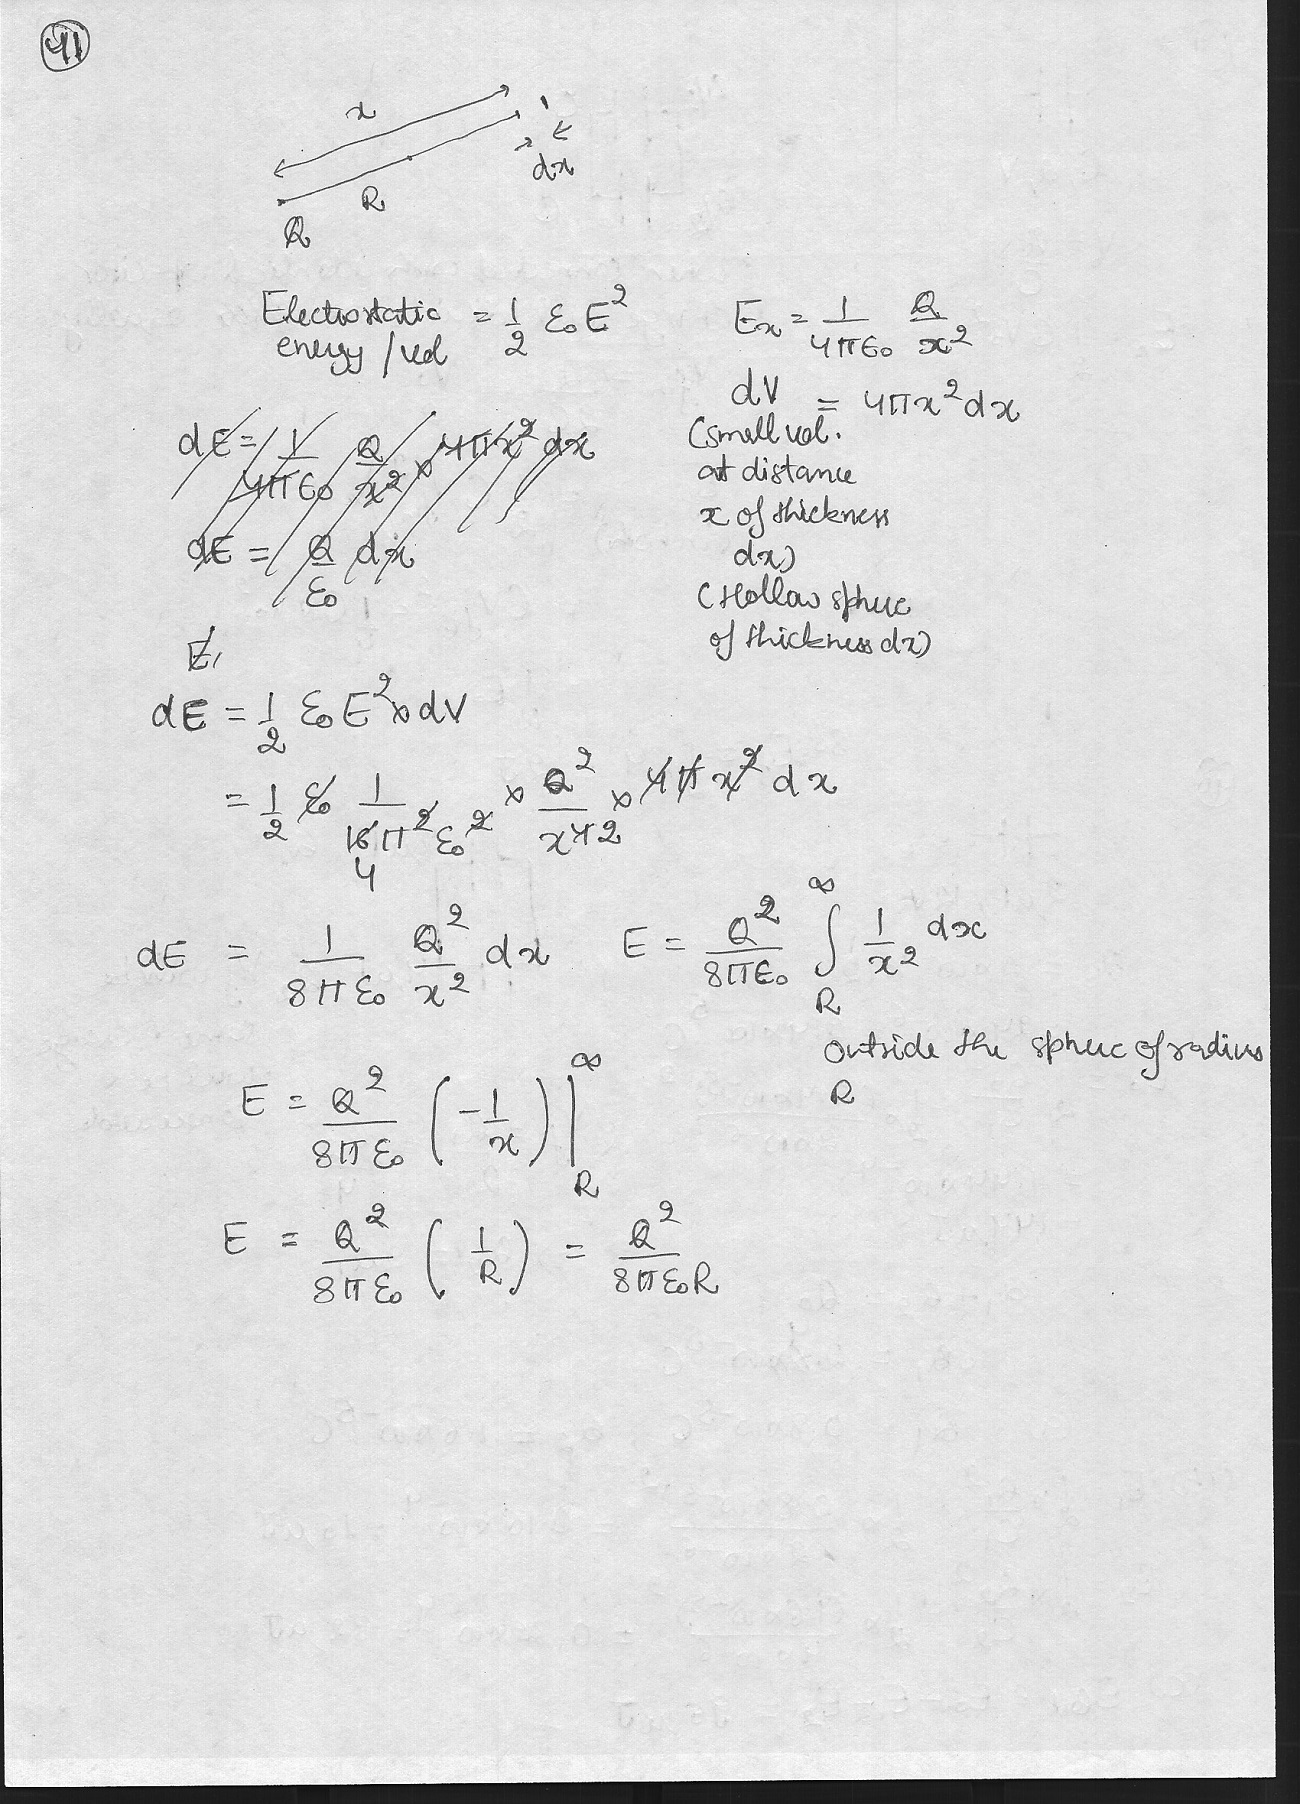 41
x
dx
R
Q
Electrostatic energy/vol = 1/2 ε₀ E²
Eₓ = 1/4πε₀ Q/x²
dV = 4πx² dx
(small vol.
at distance
x of thickness
dx)
(Hollow sphere
of thickness dx)
dE = 1/4πε₀ Q/x² × 4πx² dx
dE = Q/ε₀ dx
E,
dE = 1/2 ε₀ E² × dV
= 1/2 ε₀ 1/16π²ε₀² × Q²/x⁴ 2 × 4π x² dx
4
dE = 1/8πε₀ Q²/x² dx
E = Q²/8πε₀ ∫_R^∞ 1/x² dx
outside the sphere of radius
R
E = Q²/8πε₀ (-1/x) |_R^∞
E = Q²/8πε₀ (1/R) = Q²/8πε₀R